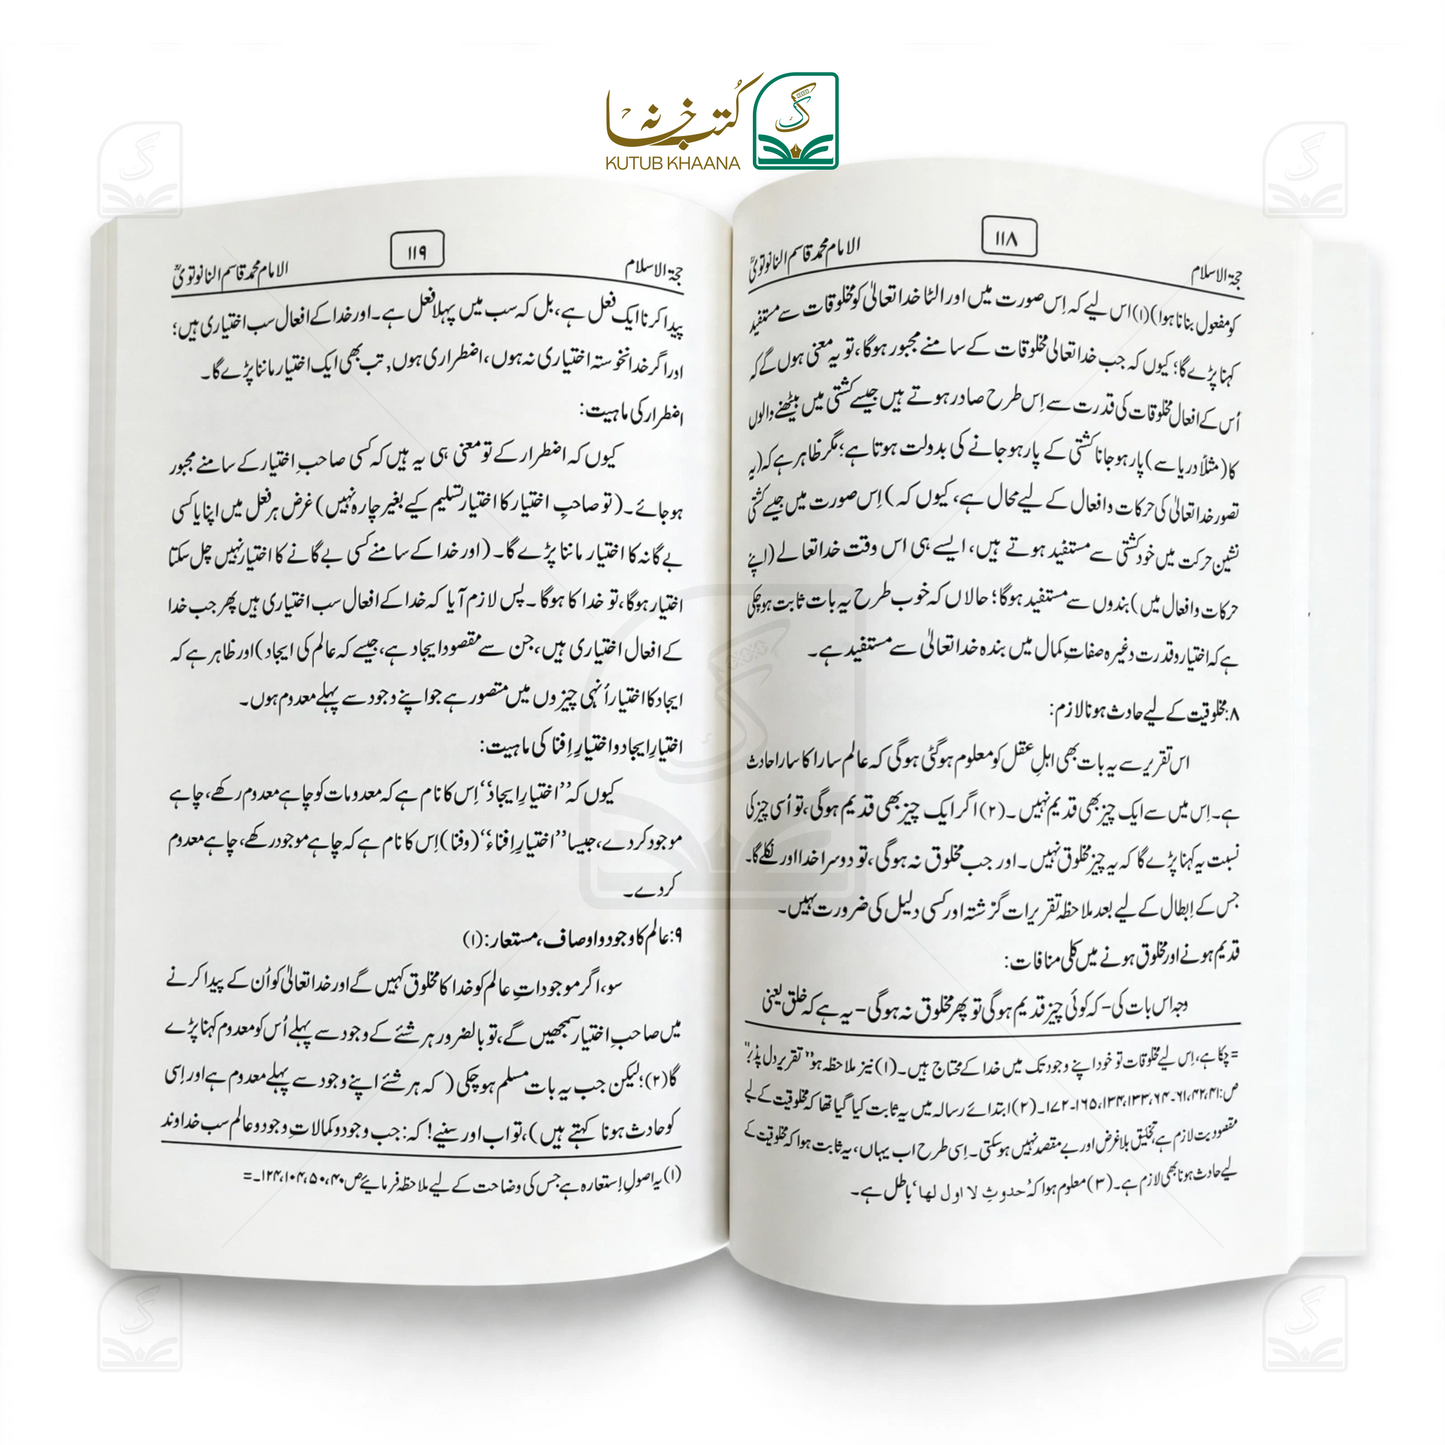 کتب خانہ
KUTUB KHAANA
حجۃ الاسلام
۱۱۸
الامام محمد قاسم النانوتویؒ
کو مفعول بنانا ہوا)(۱) اس لیے کہ اِس صورت میں اور الٹا خدا تعالیٰ کو مخلوقات سے مستفید
کہنا پڑے گا؛ کیوں کہ جب خدا تعالی مخلوقات کے سامنے مجبور ہوگا، تو یہ معنی ہوں گے کہ
اُس کے افعال مخلوقات کی قدرت سے اِس طرح صادر ہوتے ہیں جیسے کشتی میں بیٹھنے والوں
کا (مثلاً دریا سے) پار ہو جانا کشتی کے پار ہو جانے کی بدولت ہوتا ہے؛ مگر ظاہر ہے کہ (یہ
تصور خدا تعالیٰ کی حرکات وافعال کے لیے محال ہے، کیوں کہ) اِس صورت میں جیسے کشتی
نشین حرکت میں خود کشتی سے مستفید ہوتے ہیں، ایسے ہی اس وقت خدا تعالے (اپنے
حرکات وافعال میں) بندوں سے مستفید ہوگا؛ حالاں کہ خوب طرح یہ بات ثابت ہو چکی
ہے کہ اختیار وقدرت وغیرہ صفاتِ کمال میں بندہ خدا تعالیٰ سے مستفید ہے۔
۸: مخلوقیت کے لیے حادث ہونا لازم:
اس تقریر سے یہ بات بھی اہلِ عقل کو معلوم ہوگئی ہوگی کہ عالم سارا کا سارا حادث
ہے۔ اِس میں سے ایک چیز بھی قدیم نہیں۔ (۲) اگر ایک چیز بھی قدیم ہوگی، تو اُسی چیز کی
نسبت یہ کہنا پڑے گا کہ یہ چیز مخلوق نہیں۔ اور جب مخلوق نہ ہوگی، تو دوسرا خدا اور نکلے گا۔
جس کے اِبطال کے لیے بعد ملاحظہ تقریرات گزشتہ اور کسی دلیل کی ضرورت نہیں۔
قدیم ہونے اور مخلوق ہونے میں کلی منافات:
وجہ اس بات کی- کہ کوئی چیز قدیم ہوگی تو پھر مخلوق نہ ہوگی- یہ ہے کہ خلق یعنی
= چکا ہے، اِس لیے مخلوقات تو خود اپنے وجود تک میں خدا کے محتاج ہیں۔ (۱) نیز ملاحظہ ہو "تقریر دل پذیر"
ص:۴۱، ۴۲، ۶۱-۶۴، ۱۳۳، ۱۳۴، ۱۶۵-۱۷۲۔ (۲) ابتدائے رسالہ میں یہ ثابت کیا گیا تھا کہ مخلوقیت کے لیے
مقصودیت لازم ہے، تخلیق بلا غرض اور بے مقصد نہیں ہو سکتی۔ اِسی طرح اب یہاں، یہ ثابت ہوا کہ مخلوقیت کے
لیے حادث ہونا بھی لازم ہے۔ (۳) معلوم ہوا کہ 'حدوثِ لا اول لها' باطل ہے۔
حجۃ الاسلام
۱۱۹
الامام محمد قاسم النانوتویؒ
پیدا کرنا ایک فعل ہے، بل کہ سب میں پہلا فعل ہے۔ اور خدا کے افعال سب اختیاری ہیں؛
اور اگر خدانخوستہ اختیاری نہ ہوں، اضطراری ہوں, تب بھی ایک اختیار ماننا پڑے گا۔
اضطرار کی ماہیت:
کیوں کہ اضطرار کے تو معنی ہی یہ ہیں کہ کسی صاحبِ اختیار کے سامنے مجبور
ہو جائے۔ (تو صاحبِ اختیار کا اختیار تسلیم کیے بغیر چارہ نہیں) غرض ہر فعل میں اپنا یا کسی
بے گانہ کا اختیار ماننا پڑے گا۔ (اور خدا کے سامنے کسی بے گانے کا اختیار نہیں چل سکتا
اختیار ہوگا، تو خدا کا ہوگا۔ پس لازم آیا کہ خدا کے افعال سب اختیاری ہیں پھر جب خدا
کے افعال اختیاری ہیں، جن سے مقصود ایجاد ہے، جیسے کہ عالم کی ایجاد) اور ظاہر ہے کہ
ایجاد کا اختیار اُنہی چیزوں میں متصور ہے جو اپنے وجود سے پہلے معدوم ہوں۔
اختیارِ ایجاد و اختیارِ اِفنا کی ماہیت:
کیوں کہ "اختیارِ ایجاد" اِس کا نام ہے کہ معدومات کو چاہے معدوم رکھے، چاہے
موجود کر دے، جیسا "اختیارِ اِفناء" (وفنا) اِس کا نام ہے کہ چاہے موجود رکھے، چاہے معدوم
کر دے۔
۹: عالم کا وجود و اوصاف، مستعار: (۱)
سو، اگر موجوداتِ عالم کو خدا کا مخلوق کہیں گے اور خدا تعالیٰ کو اُن کے پیدا کرنے
میں صاحبِ اختیار سمجھیں گے، تو بالضرور ہر شئے کے وجود سے پہلے اُس کو معدوم کہنا پڑے
گا (۲)؛ لیکن جب یہ بات مسلم ہو چکی (کہ ہر شئے اپنے وجود سے پہلے معدوم ہے اور اِسی
کو حادث ہونا کہتے ہیں)، تو اب اور سنیے! کہ: جب وجود و کمالاتِ وجود و عالم سب خداوند
(۱) یہ اصولِ اِستعارہ ہے جس کی وضاحت کے لیے ملاحظہ فرمائیے ص ۴۰، ۵۰، ۱۰۴، ۱۲۴۔ =